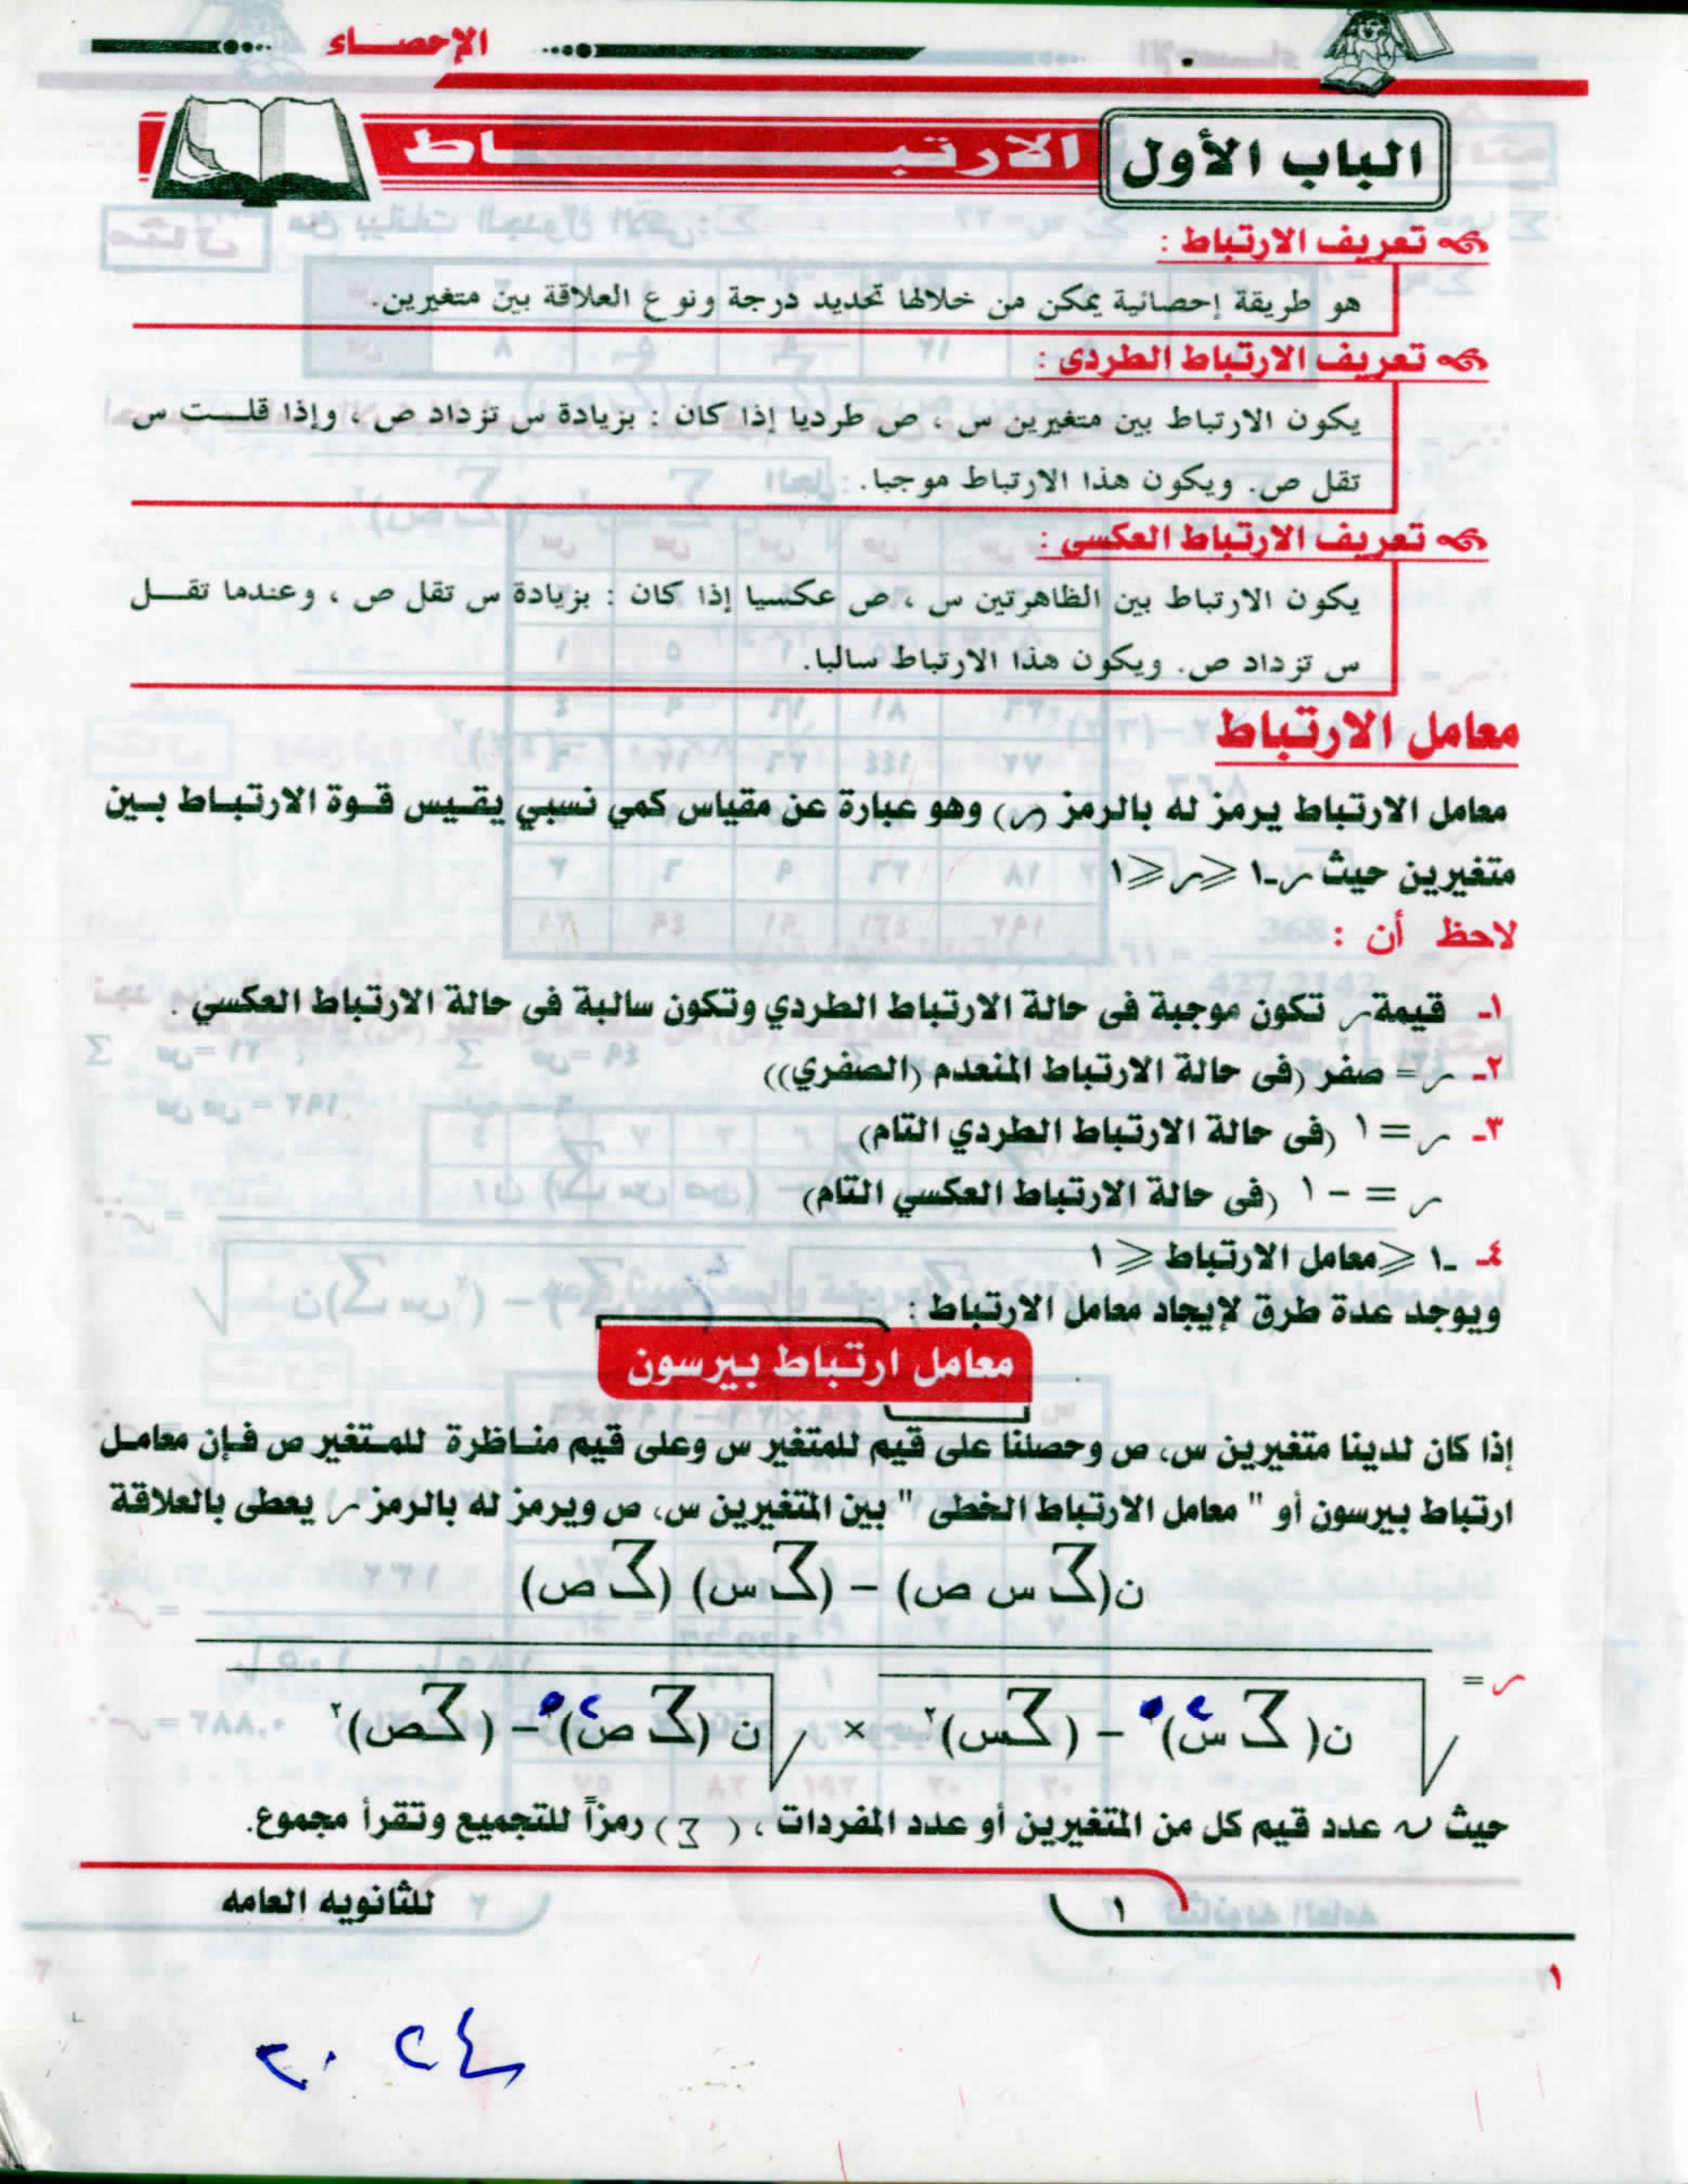 الإحصاء
الباب الأول
الارتبــــــاط
تعريف الارتباط :
هو طريقة إحصائية يمكن من خلالها تحديد درجة ونوع العلاقة بين متغيرين.
تعريف الارتباط الطردى :
يكون الارتباط بين متغيرين س ، ص طرديا إذا كان : بزيادة س تزداد ص ، وإذا قلت س
تقل ص. ويكون هذا الارتباط موجبا.
تعريف الارتباط العكسى :
يكون الارتباط بين الظاهرتين س ، ص عكسيا إذا كان : بزيادة س تقل ص ، وعندما تقل
س تزداد ص. ويكون هذا الارتباط سالبا.
معامل الارتباط
معامل الارتباط يرمز له بالرمز (ر) وهو عبارة عن مقياس كمي نسبي يقيس قوة الارتباط بين
متغيرين حيث ر ـ١ ≤ ر ≤ ١
لاحظ أن :
١ـ قيمة ر تكون موجبة فى حالة الارتباط الطردي وتكون سالبة فى حالة الارتباط العكسي .
٢ـ ر = صفر (فى حالة الارتباط المنعدم (الصفري))
٣ـ ر = ١ (فى حالة الارتباط الطردي التام)
ر = - ١ (فى حالة الارتباط العكسي التام)
٤ـ ـ١ ≤ معامل الارتباط ≤ ١
ويوجد عدة طرق لإيجاد معامل الارتباط :
معامل ارتباط بيرسون
إذا كان لدينا متغيرين س، ص وحصلنا على قيم للمتغير س وعلى قيم مناظرة للمتغير ص فإن معامل
ارتباط بيرسون أو " معامل الارتباط الخطى " بين المتغيرين س، ص ويرمز له بالرمز ر يعطى بالعلاقة
ن(∑ س ص) – (∑ س) (∑ ص)
ر = √ن(∑ س٢) – (∑س)٢ × √ن (∑ ص٢) – (∑ص)٢
حيث ن عدد قيم كل من المتغيرين أو عدد المفردات ، ( ∑ ) رمزاً للتجميع وتقرأ مجموع.
١
للثانويه العامه
١
٢٠٢٤